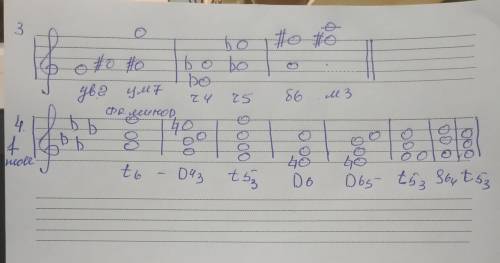 3
ув2 ум7 ч4 ч5 б6 м3
фа минор
4.
f moll
t6 - D43 t53 D6 D65 - t53 S64 t53